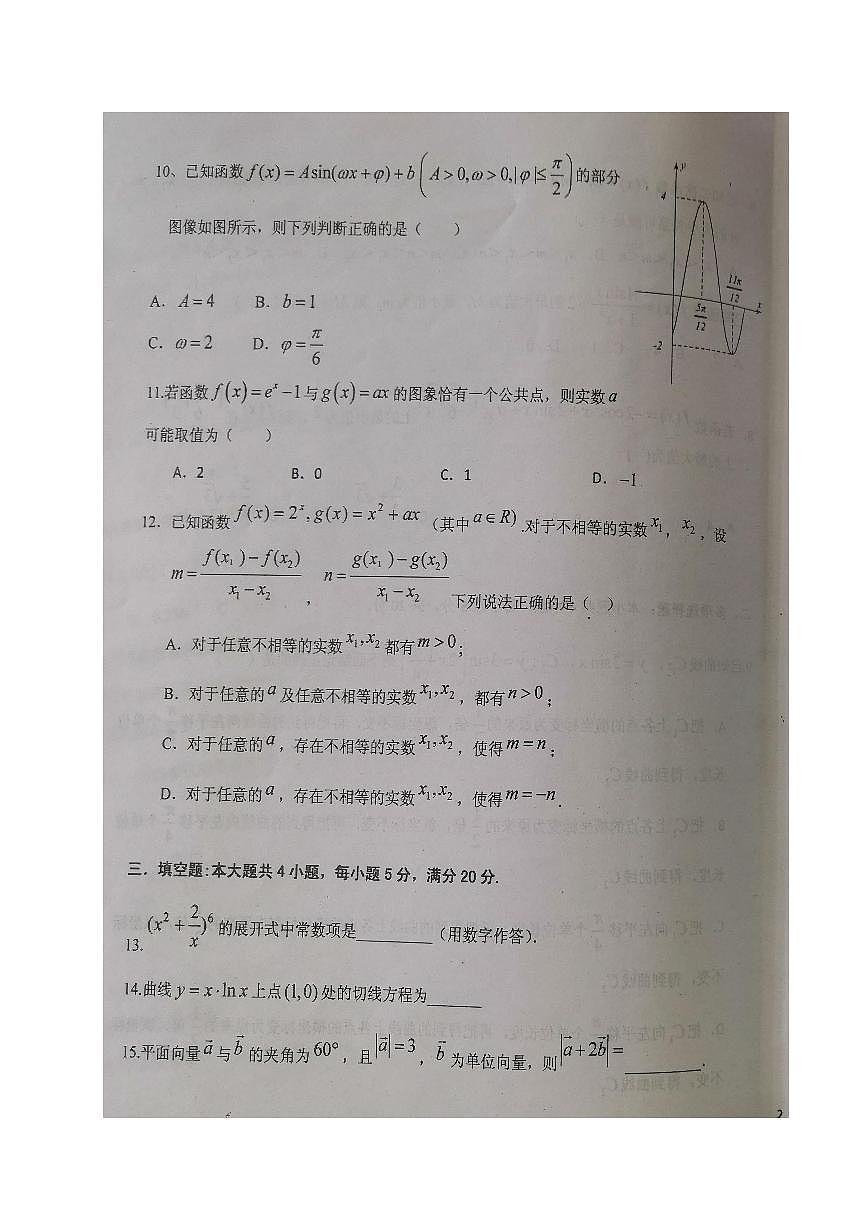 10、已知函数 f(x) = Asin(ωx+φ)+b (A>0,ω>0,|φ|≤π/2) 的部分
图像如图所示，则下列判断正确的是（ ）
y
4
-2
5π/12
11π/12
x
A. A=4 B. b=1
C. ω=2 D. φ=π/6
11.若函数 f(x)=e^x-1 与 g(x)=ax 的图象恰有一个公共点，则实数a
可能取值为（ ）
A. 2 B. 0 C. 1 D. -1
12. 已知函数 f(x)=2^x, g(x)=x^2+ax （其中 a∈R) .对于不相等的实数 x₁，x₂，设
m=(f(x₁)-f(x₂))/(x₁-x₂)， n=(g(x₁)-g(x₂))/(x₁-x₂) 下列说法正确的是（ ）
A. 对于任意不相等的实数 x₁,x₂ 都有 m>0；
B. 对于任意的a及任意不相等的实数 x₁,x₂，都有 n>0；
C. 对于任意的a，存在不相等的实数 x₁,x₂，使得 m=n；
D. 对于任意的a，存在不相等的实数 x₁,x₂，使得 m=-n.
三．填空题:本大题共4小题，每小题5分，满分20分.
13. (x^2+2/x)^6 的展开式中常数项是________（用数字作答）.
14.曲线 y=x·ln x 上点(1,0)处的切线方程为______
15.平面向量 a⃗ 与 b⃗ 的夹角为60°，且 |a⃗|=3，b⃗ 为单位向量，则 |a⃗+2b⃗|=________.
2